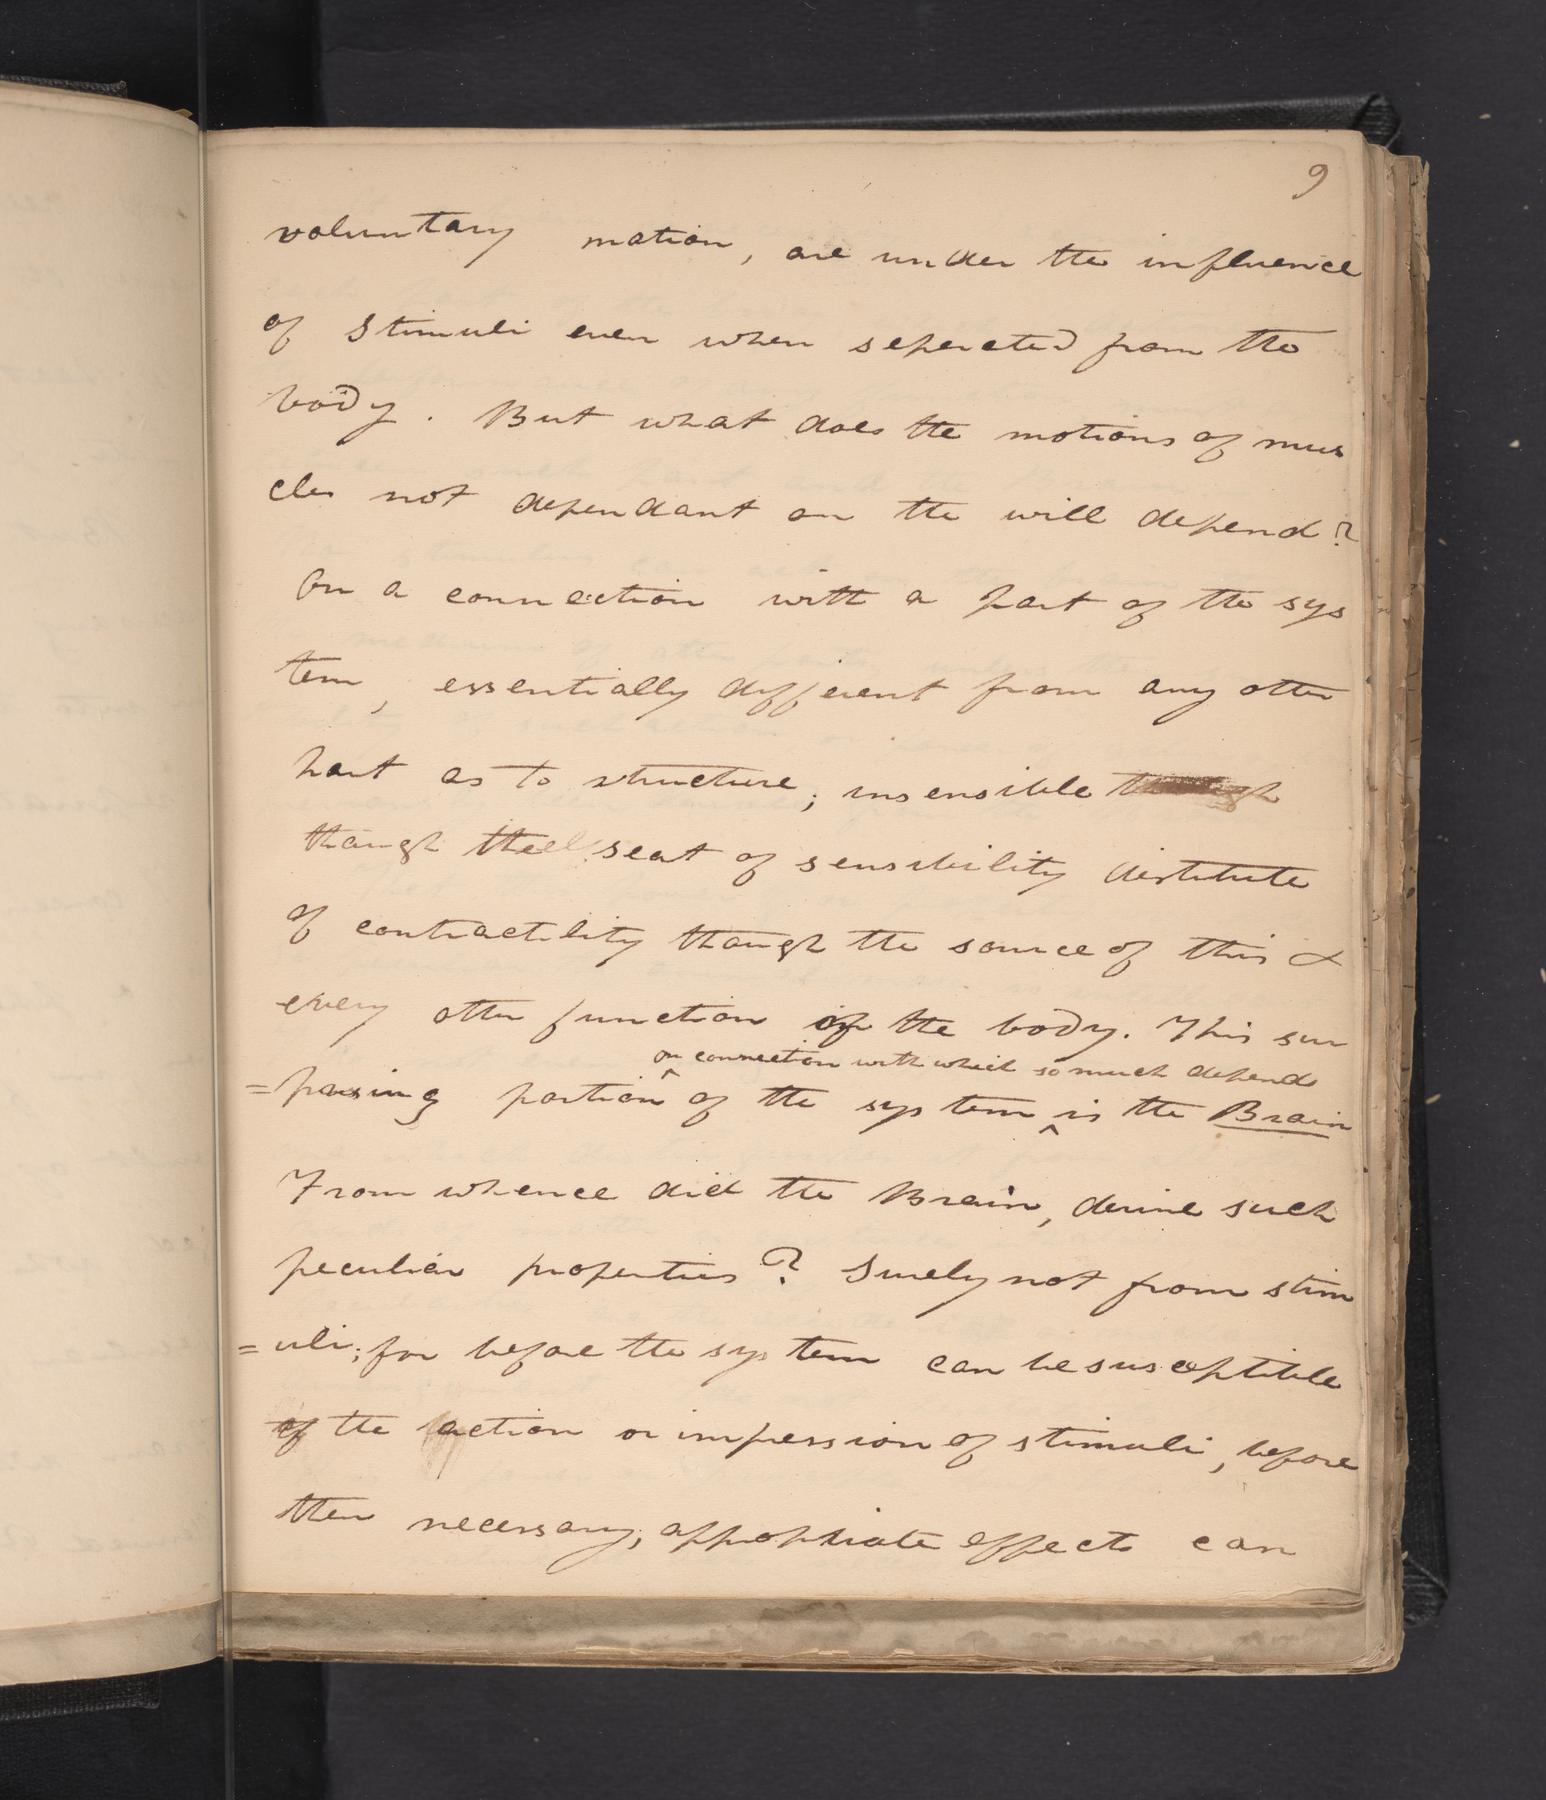 9
voluntary motion, are under the influence
of stimuli even when seperated from the
body. But what does the motions of mus
cles not dependant on the will depend?
On a connection with a part of the sys
tem, essentially different from any other
part as to structure; insensible though
though the seat of sensibility distitute
of contractility though the source of this &
every other function of the body. This sur
on connection with which so much depends
=passing portion of the system is the Brain
From whence did the Brain, derive such
peculiar properties? Surely not from stim
=uli; for before the system can be susceptible
of the action or impression of stimuli, before
then necessary, appropriate effects can